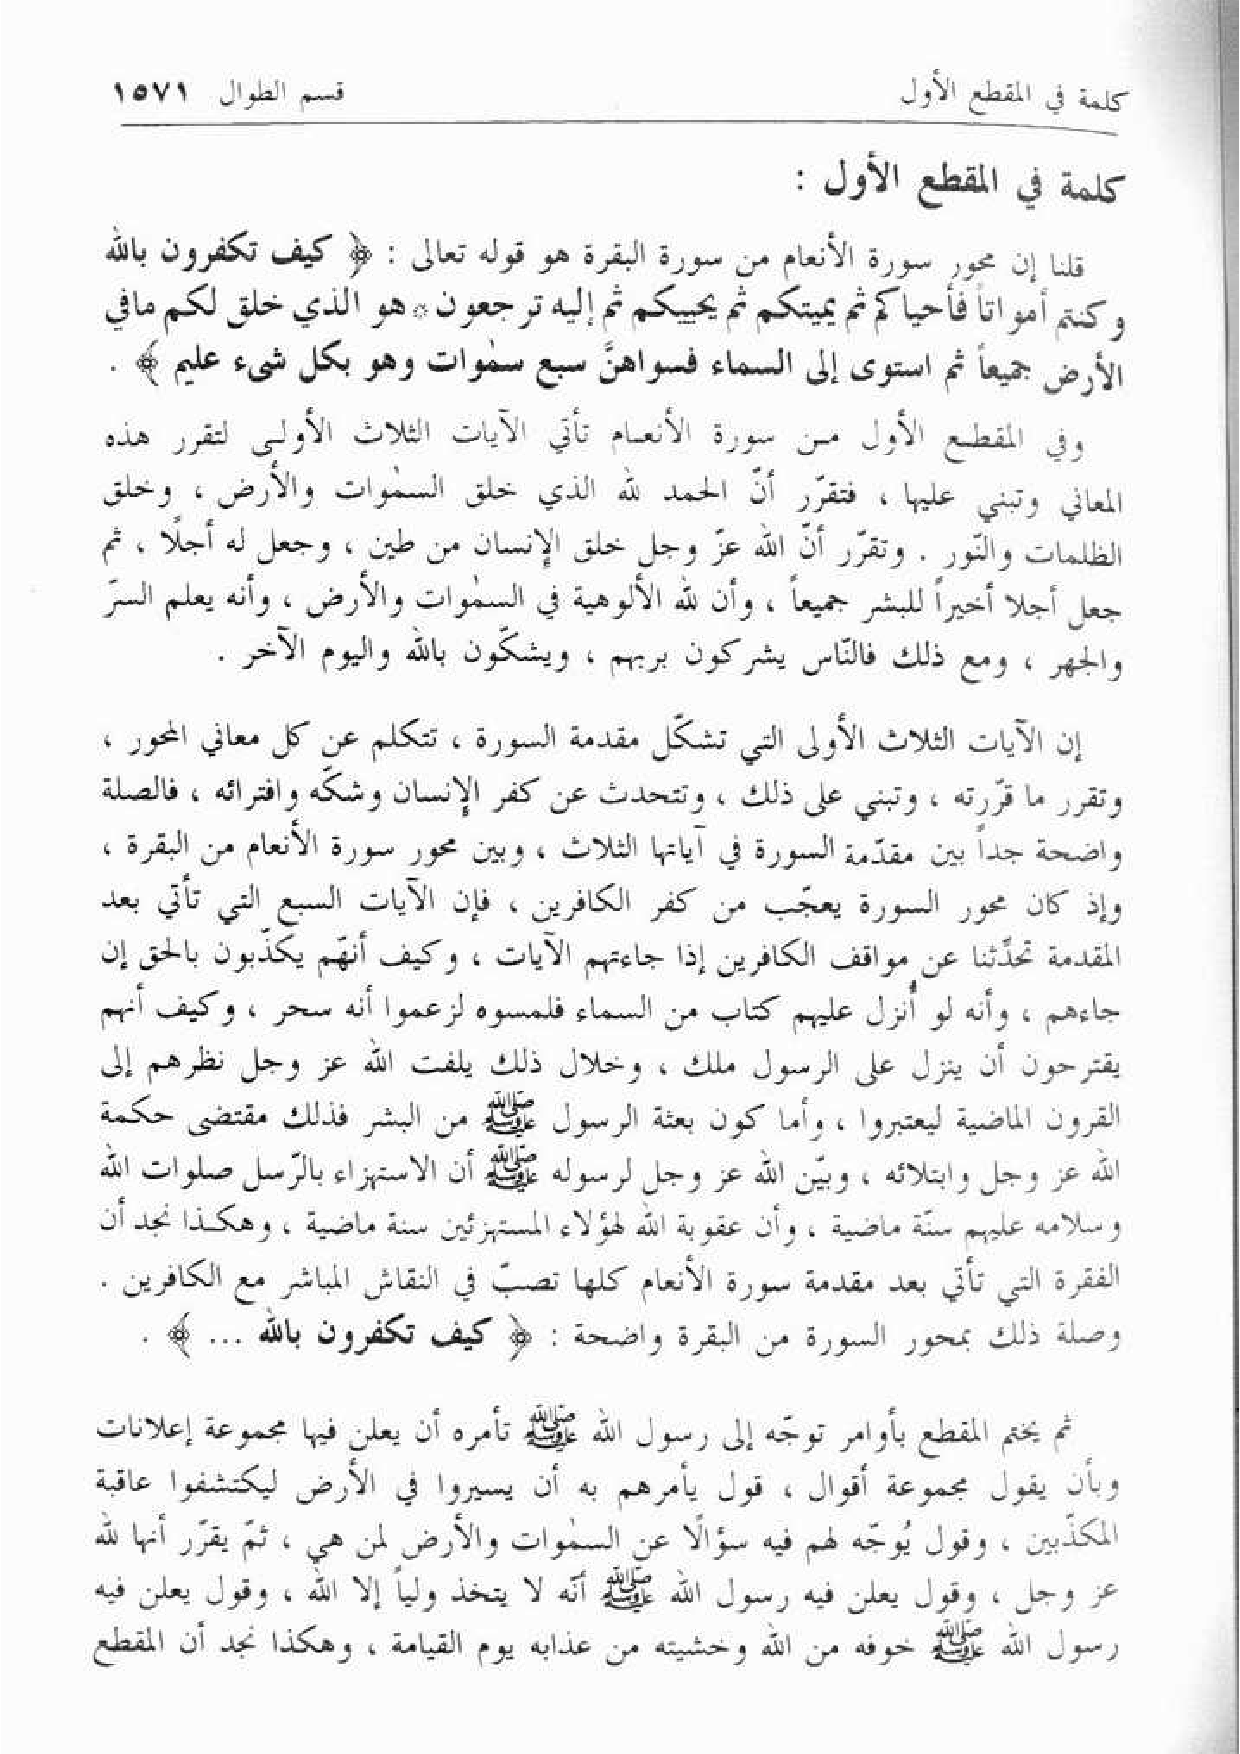 كلمة في المقطع الأول
قسم الطوال ١٥٧١
كلمة في المقطع الأول :
قلنا إن محور سورة الأنعام من سورة البقرة هو قوله تعالى : ﴿ كيف تكفرون بالله
وكنتم أمواتاً فأحياكم ثم يميتكم ثم يحييكم ثم إليه ترجعون * هو الذي خلق لكم مافي
الأرض جميعاً ثم استوى إلى السماء فسواهنَّ سبع سمٰوات وهو بكل شيء عليم ﴾ .
وفي المقطع الأول من سورة الأنعام تأتي الآيات الثلاث الأولى لتقرر هذه
المعاني وتبني عليها ، فتقرّر أنّ الحمد لله الذي خلق السمٰوات والأرض ، وخلق
الظلمات والنّور . وتقرّر أنّ الله عزّ وجل خلق الإنسان من طين ، وجعل له أجلًا ، ثم
جعل أجلا أخيراً للبشر جميعاً ، وأن لله الألوهية في السمٰوات والأرض ، وأنه يعلم السرّ
والجهر ، ومع ذلك فالنّاس يشركون بربهم ، ويشكّون بالله واليوم الآخر .
إن الآيات الثلاث الأولى التي تشكّل مقدمة السورة ، تتكلم عن كل معاني المحور ،
وتقرر ما قرّرته ، وتبني على ذلك ، وتتحدث عن كفر الإنسان وشكّه وافترائه ، فالصلة
واضحة جداً بين مقدّمة السورة في آياتها الثلاث ، وبين محور سورة الأنعام من البقرة ،
وإذ كان محور السورة يعجّب من كفر الكافرين ، فإن الآيات السبع التي تأتي بعد
المقدمة تحدِّثنا عن مواقف الكافرين إذا جاءتهم الآيات ، وكيف أنهّم يكذّبون بالحق إن
جاءهم ، وأنه لو أُنزل عليهم كتاب من السماء فلمسوه لزعموا أنه سحر ، وكيف أنهم
يقترحون أن ينزل على الرسول ملك ، وخلال ذلك يلفت الله عز وجل نظرهم إلى
القرون الماضية ليعتبروا ، وأما كون بعثة الرسول ﷺ من البشر فذلك مقتضى حكمة
الله عز وجل وابتلائه ، وبيّن الله عز وجل لرسوله ﷺ أن الاستهزاء بالرّسل صلوات الله
وسلامه عليهم سنّة ماضية ، وأن عقوبة الله لهؤلاء المستهزئين سنة ماضية ، وهكذا نجد أن
الفقرة التي تأتي بعد مقدمة سورة الأنعام كلها تصبّ في النقاش المباشر مع الكافرين .
وصلة ذلك بمحور السورة من البقرة واضحة : ﴿ كيف تكفرون بالله ... ﴾ .
ثم يختم المقطع بأوامر توجّه إلى رسول الله ﷺ تأمره أن يعلن فيها مجموعة إعلانات
وبأن يقول مجموعة أقوال ، قول يأمرهم به أن يسيروا في الأرض ليكتشفوا عاقبة
المكذّبين ، وقول يُوجّه لهم فيه سؤالًا عن السمٰوات والأرض لمن هي ، ثمّ يقرّر أنها لله
عز وجل ، وقول يعلن فيه رسول الله ﷺ أنّه لا يتخذ ولياً إلا الله ، وقول يعلن فيه
رسول الله ﷺ خوفه من الله وخشيته من عذابه يوم القيامة ، وهكذا نجد أن المقطع